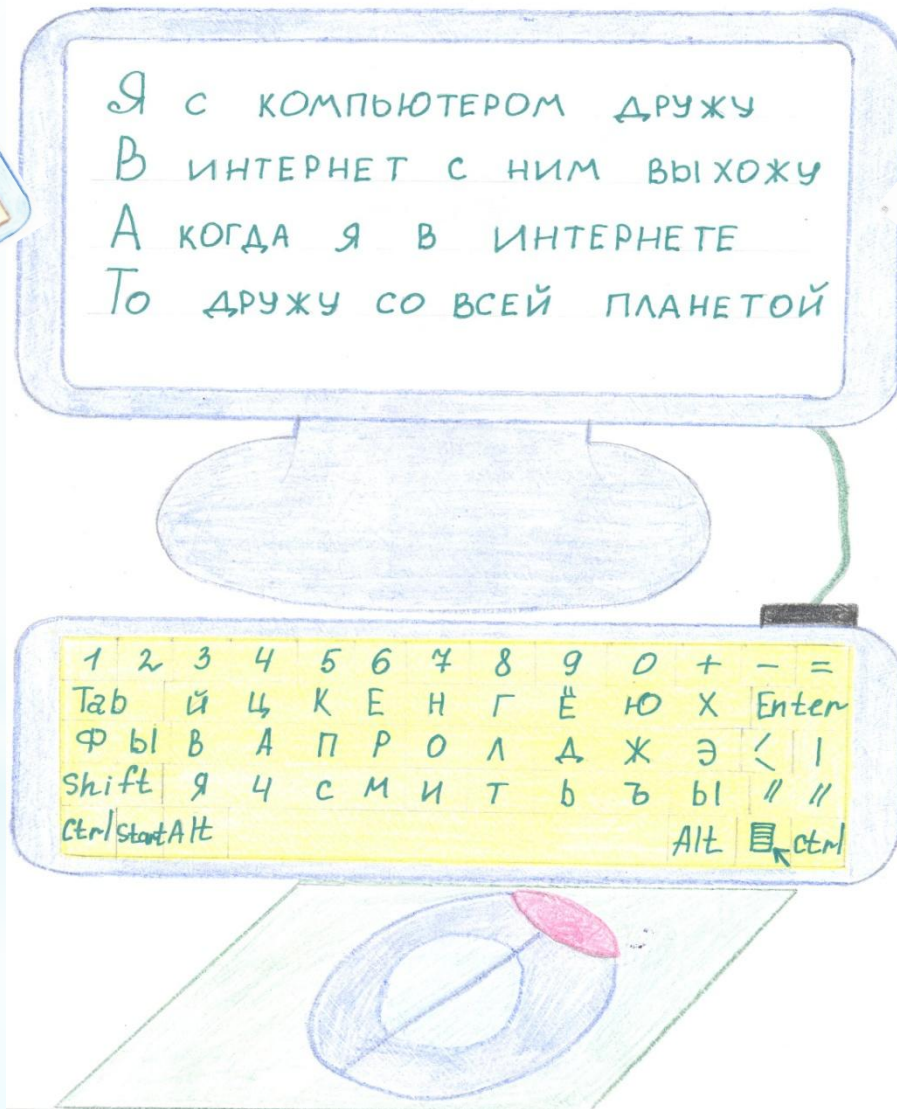 Я С КОМПЬЮТЕРОМ ДРУЖУ
В ИНТЕРНЕТ С НИМ ВЫХОЖУ
А КОГДА Я В ИНТЕРНЕТЕ
ТО ДРУЖУ СО ВСЕЙ ПЛАНЕТОЙ
1 2 3 4 5 6 7 8 9 0 + - =
Tab Й Ц К Е Н Г Ё Ю Х Enter
Ф Ы В А П Р О Л Д Ж Э < |
Shift Я Ч С М И Т Ь Ъ Ы // //
Ctrl Start Alt Alt Ctrl